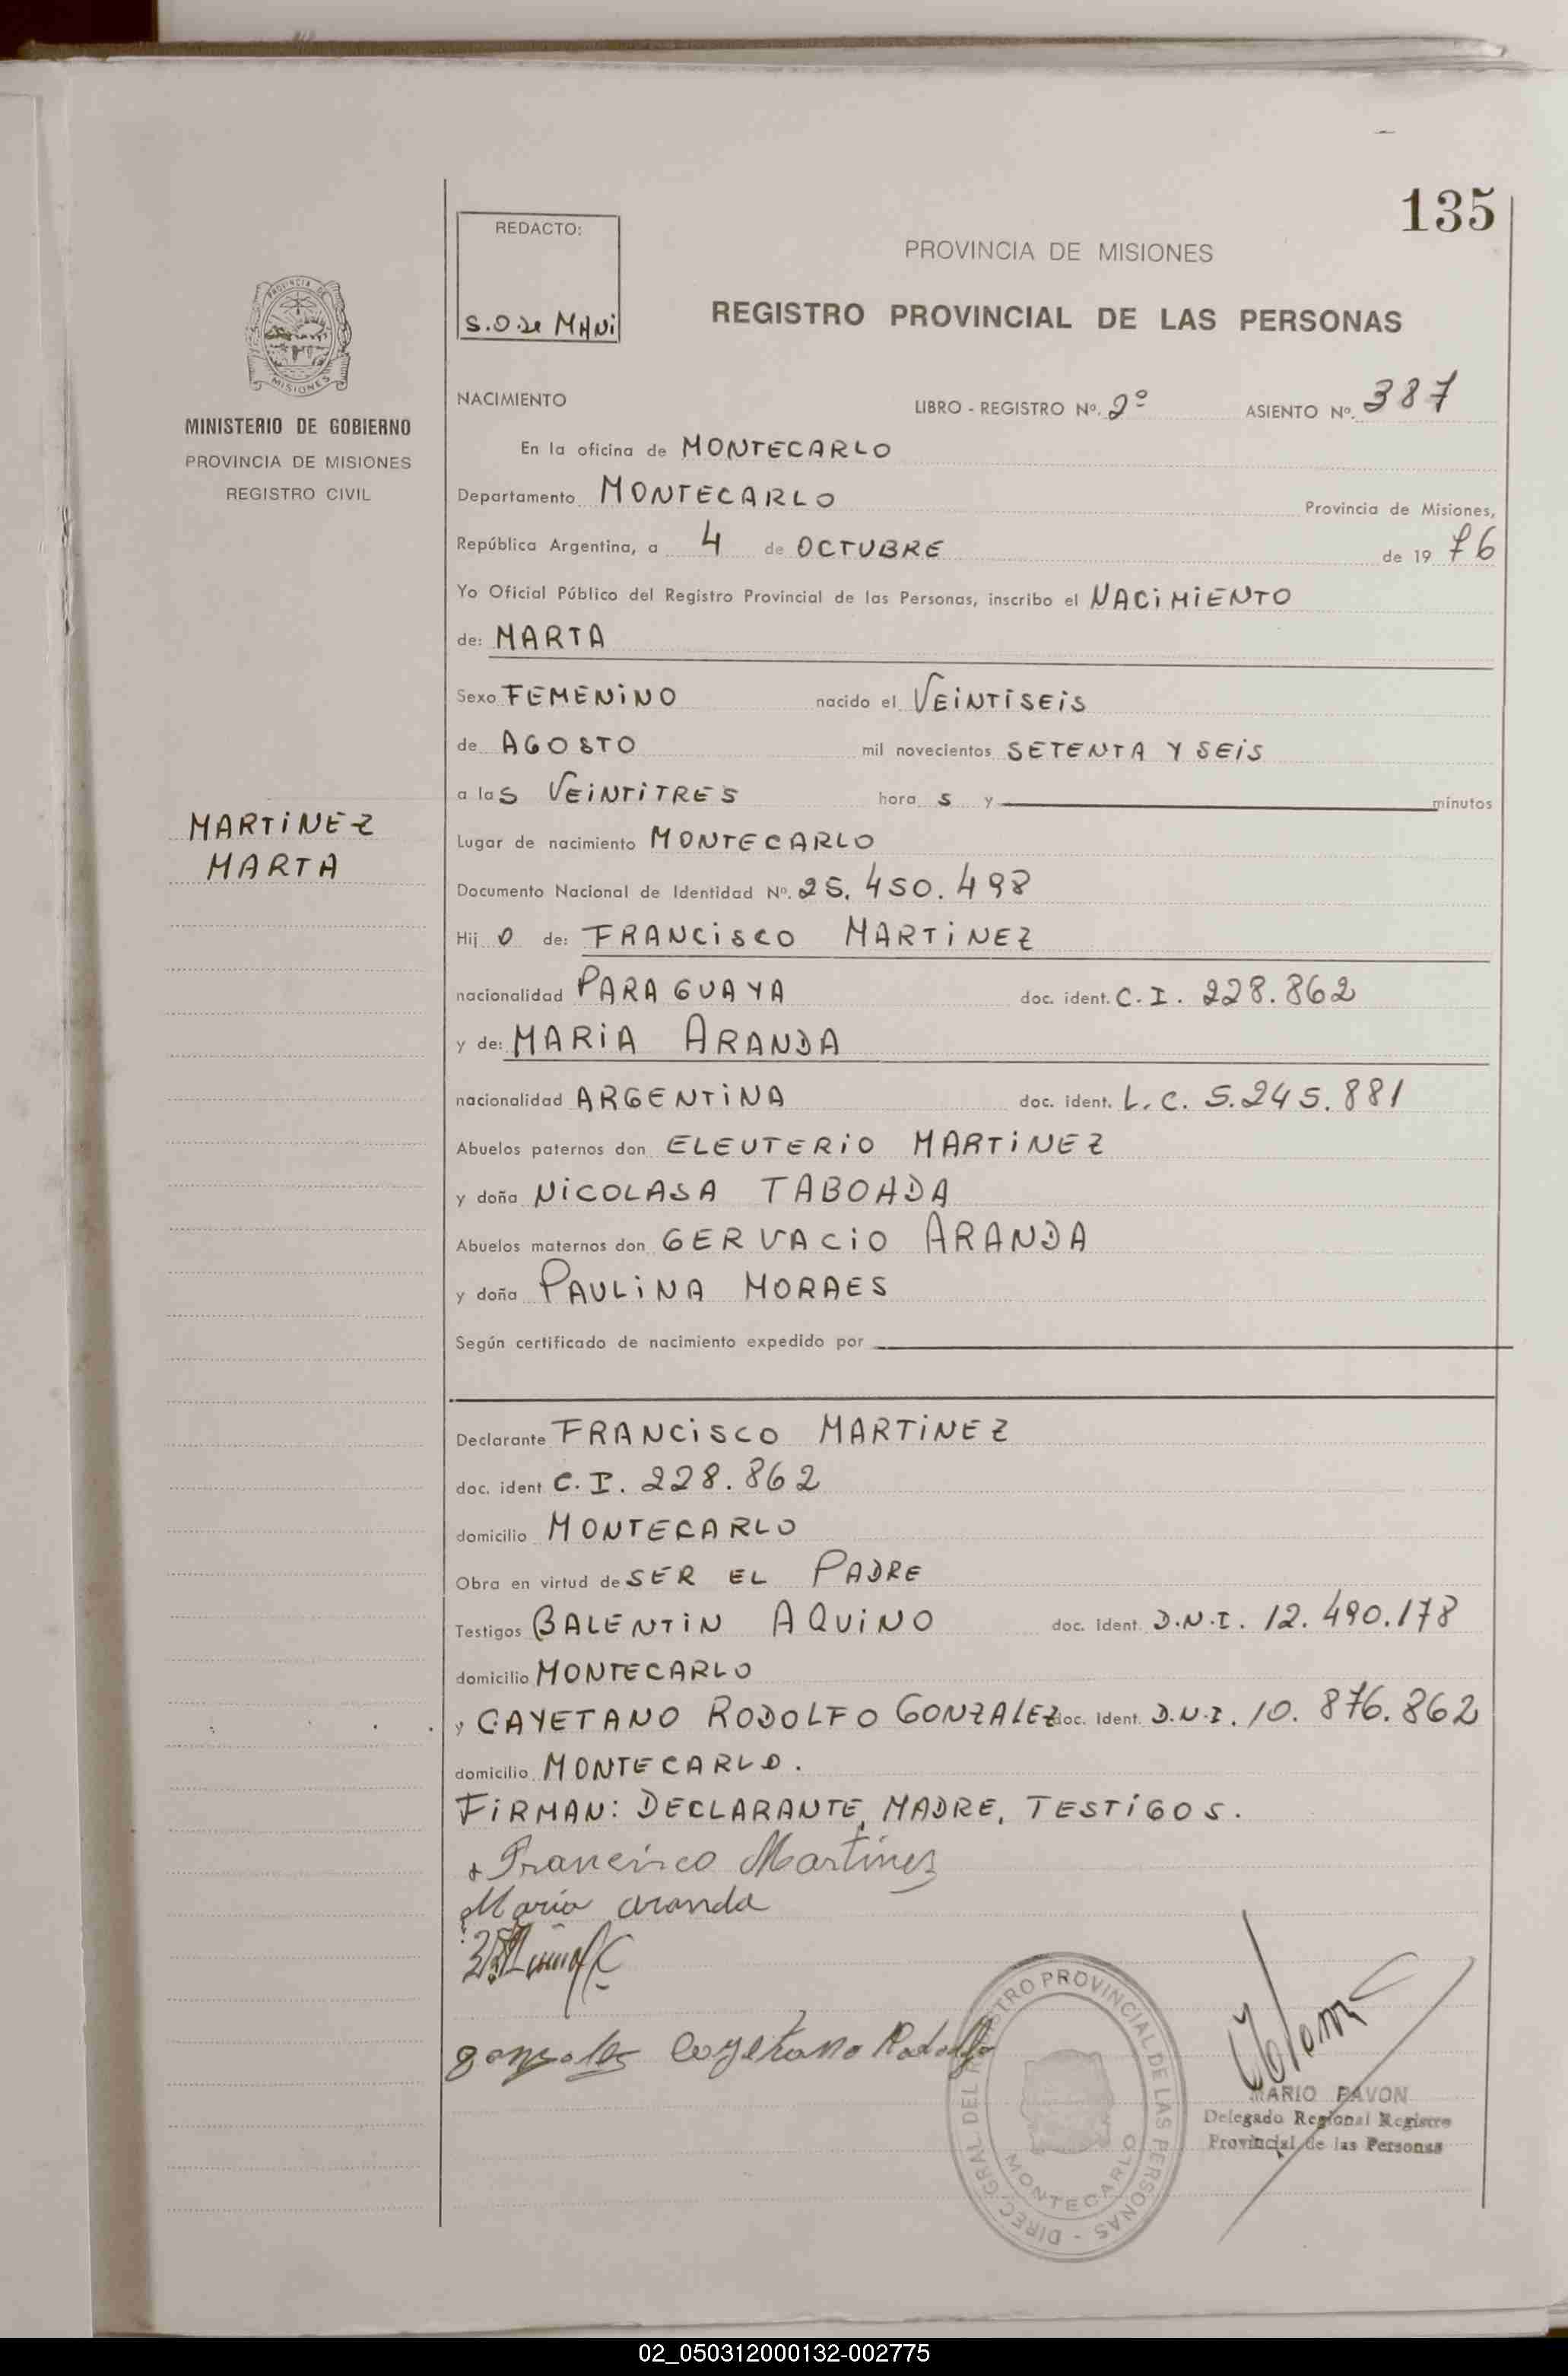 135
REDACTO:
S.O.de MANi
PROVINCIA DE MISIONES
REGISTRO PROVINCIAL DE LAS PERSONAS
MISIONES
MINISTERIO DE GOBIERNO
PROVINCIA DE MISIONES
REGISTRO CIVIL
MARTiNEZ
MARTA
NACIMIENTO LIBRO - REGISTRO Nº. 2º ASIENTO Nº. 387
En la oficina de MONTECARLO
Departamento MONTECARLO Provincia de Misiones,
República Argentina, a 4 de OCTUBRE de 19 76
Yo Oficial Público del Registro Provincial de las Personas, inscribo el NACiMiENTO
de: MARTA
Sexo FEMENiNO nacido el VEiNTiSEiS
de AGOSTO mil novecientos SETENTA Y SEiS
a las VEiNTiTRES hora s y minutos
Lugar de nacimiento MONTECARLO
Documento Nacional de Identidad Nº. 25.450.498
Hij o de: FRANCiSCO MARTiNEZ
nacionalidad PARAGUAYA doc. ident. C.I. 228.862
y de: MARiA ARANDA
nacionalidad ARGENTiNA doc. ident. L.C. 5.245.881
Abuelos paternos don ELEUTERiO MARTiNEZ
y doña NiCOLASA TABOADA
Abuelos maternos don GERVACiO ARANDA
y doña PAULiNA MORAES
Según certificado de nacimiento expedido por
Declarante FRANCiSCO MARTiNEZ
doc. ident C.I. 228.862
domicilio MONTECARLO
Obra en virtud de SER EL PADRE
Testigos BALENTiN AQUiNO doc. ident. D.N.I. 12.490.178
domicilio MONTECARLO
y CAYETANO RODOLFO GONZALEZ doc. ident. D.N.I. 10.876.862
domicilio MONTECARLO.
FiRMAN: DECLARANTE, MADRE, TESTiGOS.
Francisco Martinez
Maria aranda
gonzalez Cayetano Rodolfo
DIREC. GRAL. DEL REGISTRO PROVINCIAL DE LAS PERSONAS - MONTECARLO
MARIO PAVON
Delegado Regional Registro
Provincial de las Personas
02_050312000132-002775